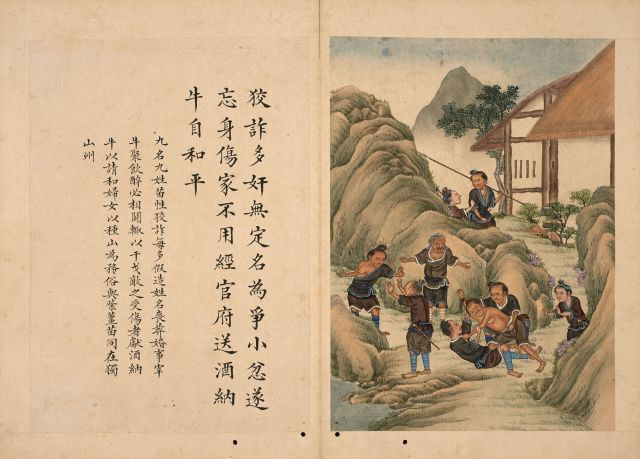 狡詐多奸無定名為爭小忿遂
忘身傷家不用經官府送酒納
牛自和平
九名九姓苗性狡詐每多假造姓名喪葬婚事宰
牛聚飲醉必相鬭輒以干戈敵之受傷者獻酒納
牛以請和婦女以種山為務俗與紫薑苗同在獨
山州